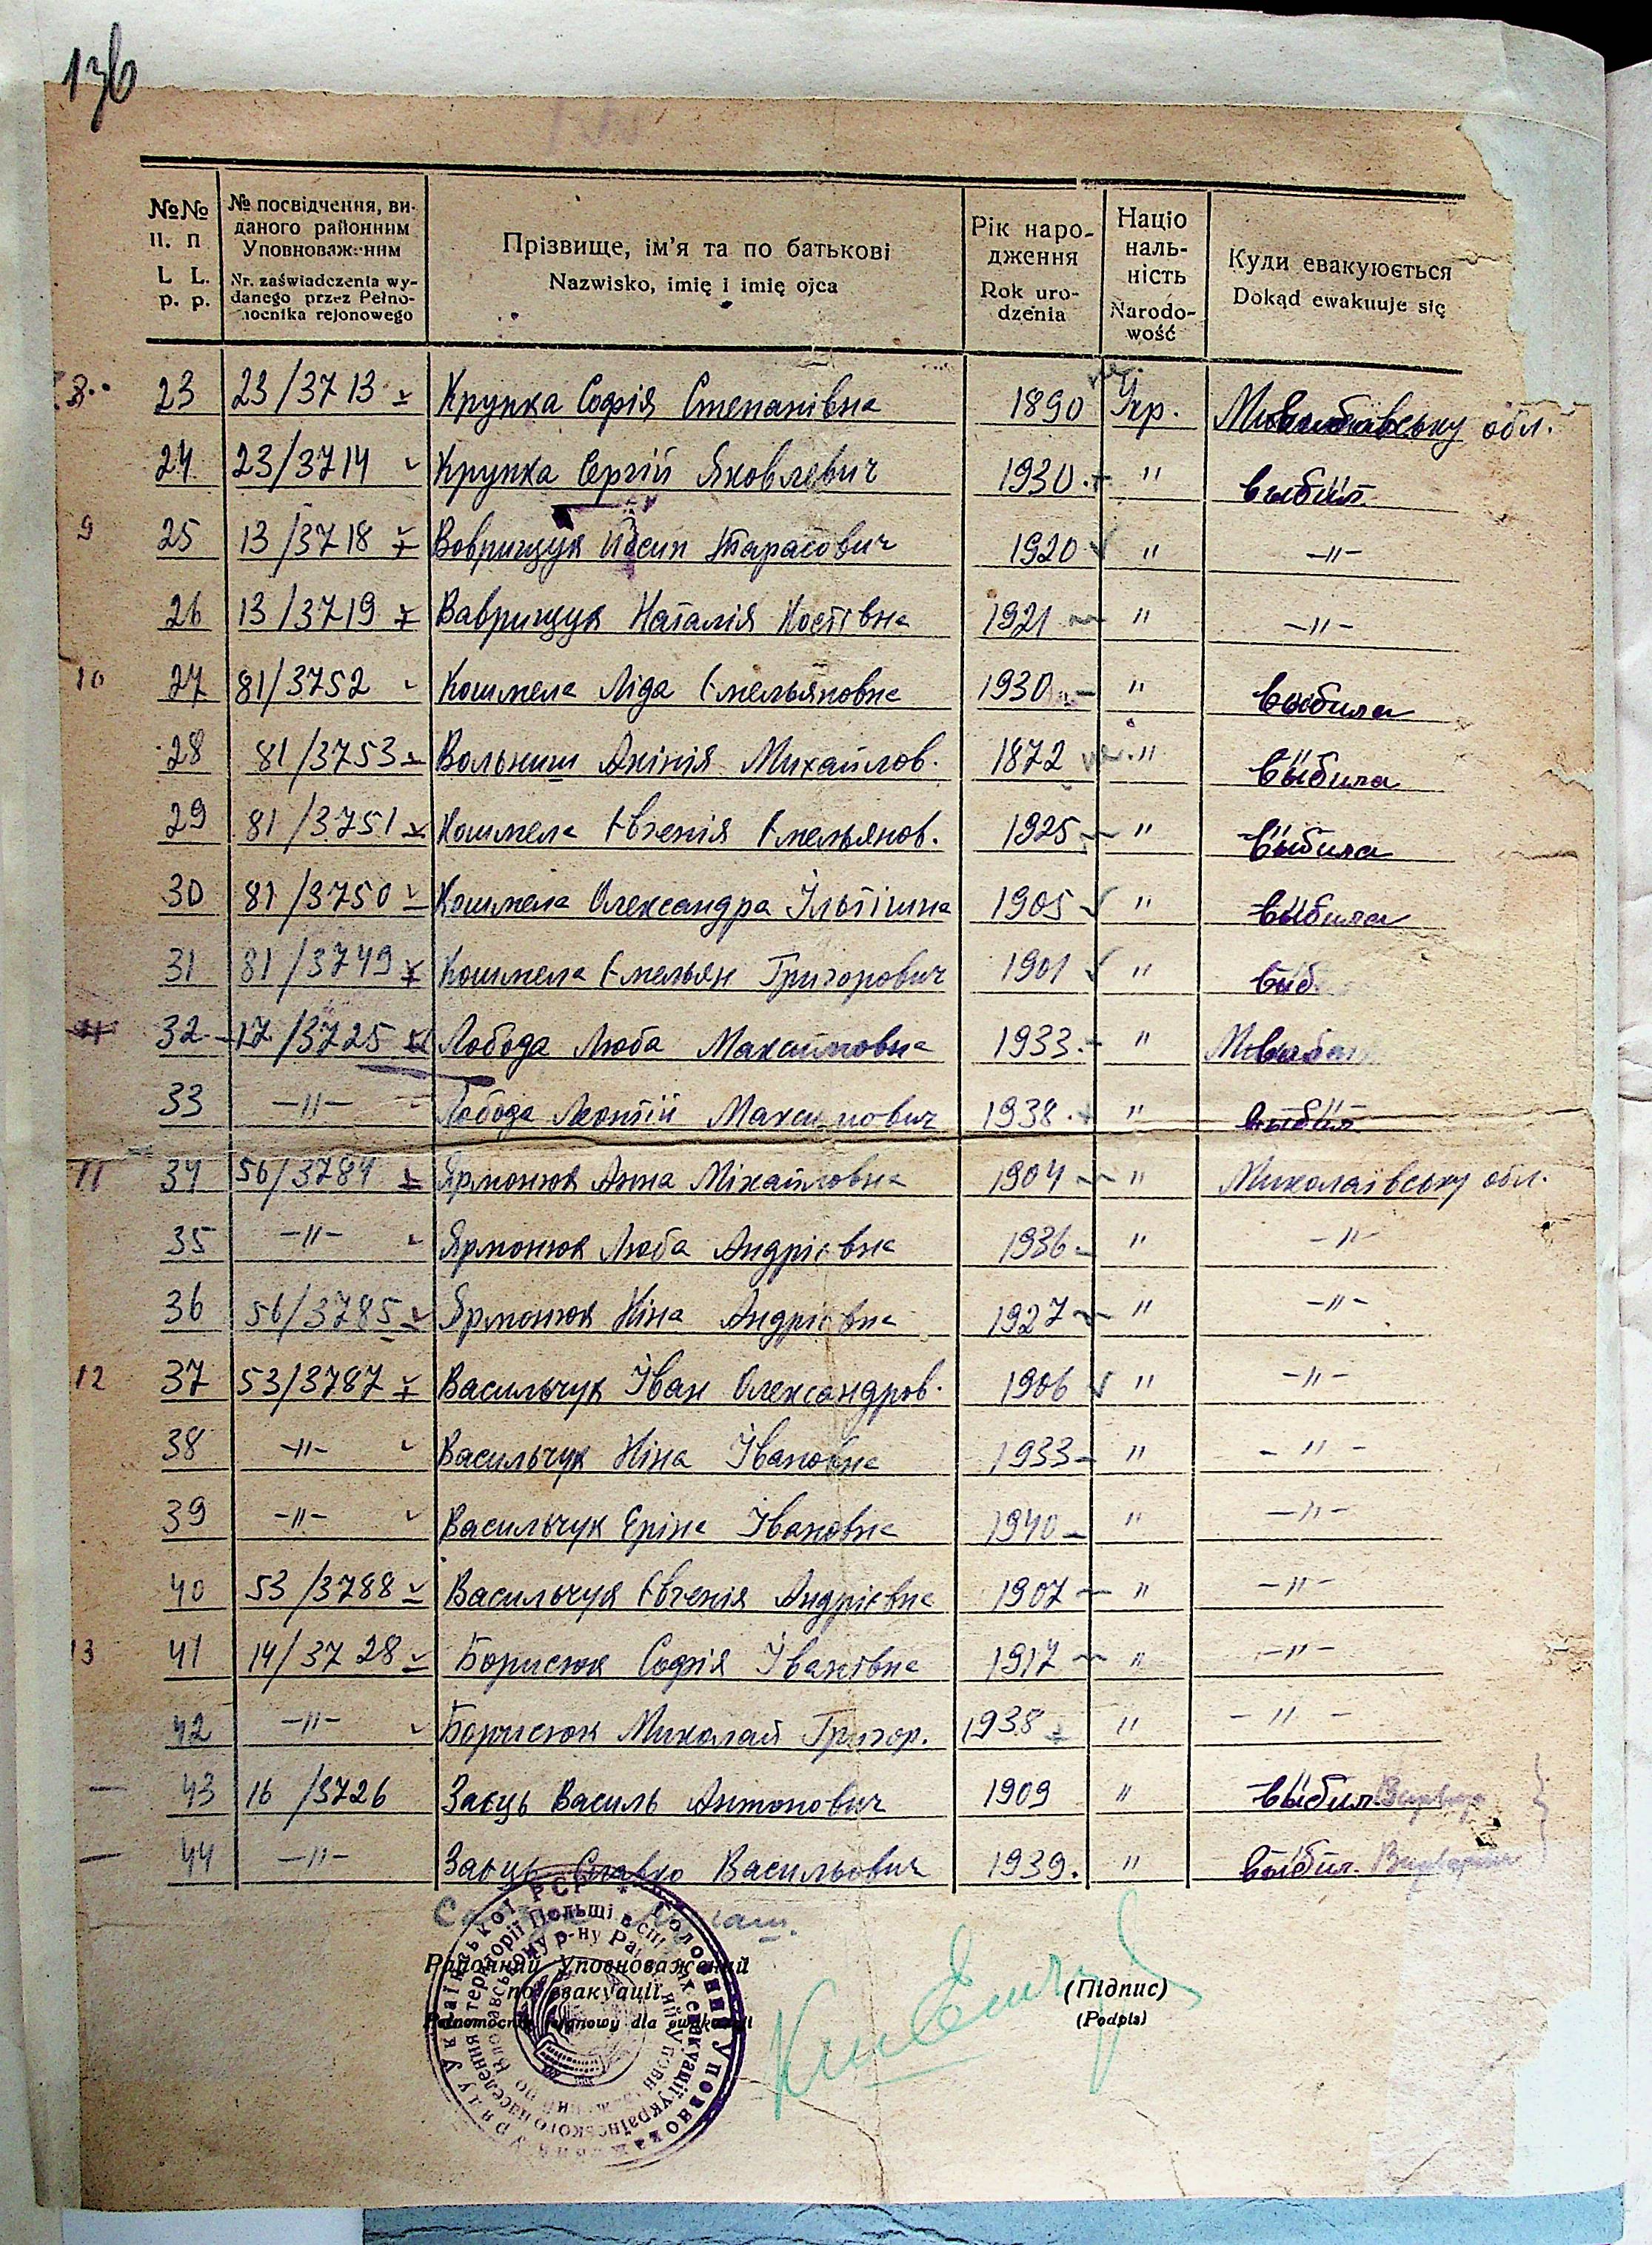 136
№№ п. п L. L. p. p.
№ посвідчення, виданого районним Уповноваженим
Nr. zaświadczenia wydanego przez Pełnomocnika rejonowego
Прізвище, ім'я та по батькові
Nazwisko, imię i imię ojca
Рік народження
Rok urodzenia
Національність
Narodowość
Куди евакуюється
Dokąd ewakuuje się
8. 23 23/3713 Крупка Софія Степанівна 1890 Укр. обл.
24 23/3714 Крупка Сергій Яковлевич 1930 " выбил
9 25 13/3718 Воврищук Йосип Тарасович 1920 " -"-
26 13/3719 Ваврищук Наталія Костівна 1921 " -"-
10 27 81/3752 Кошмела Ліда Ємельяновна 1930 " выбила
28 81/3753 Вольниш Михайлов. 1872 " выбила
29 81/3751 Кошмела Євгенія Ємельянов. 1925 " выбила
30 81/3750 Кошмела Олександра 1905 " выбила
31 81/3749 Кошмела Ємельян Григорович 1901 "
32 17/3725 Лобода Люба Максимовна 1933 "
33 -"- Лобода Леонтій Максимович 1938 " выбил
11 34 56/3784 Ярмонюк Анна Міхайловна 1904 " Миколаївську обл.
35 -"- Ярмонюк Люба Андрієвна 1936 " -"-
36 56/3785 Ярмонюк Ніна Андрієвна 1927 " -"-
12 37 53/3787 Васильчук Іван Олександров. 1906 " -"-
38 -"- Васильчук Ніна Івановна 1933 " -"-
39 -"- Васильчук Еріна Івановна 1940 " -"-
40 53/3788 Васильчук Євгенія Андрієвна 1907 " -"-
13 41 14/3728 Борисюк Софія Іванівна 1917 " -"-
42 -"- Борисюк Миколай Григор. 1938 " -"-
43 16/3726 Заєць Василь Антонович 1909 " выбил
44 -"- Заєць Славко Васильович 1939. " выбил.
Районний Уповноважений
по евакуації
Pełnomocnik rejonowy dla ewakuacji
(Підпис)
(Podpis)